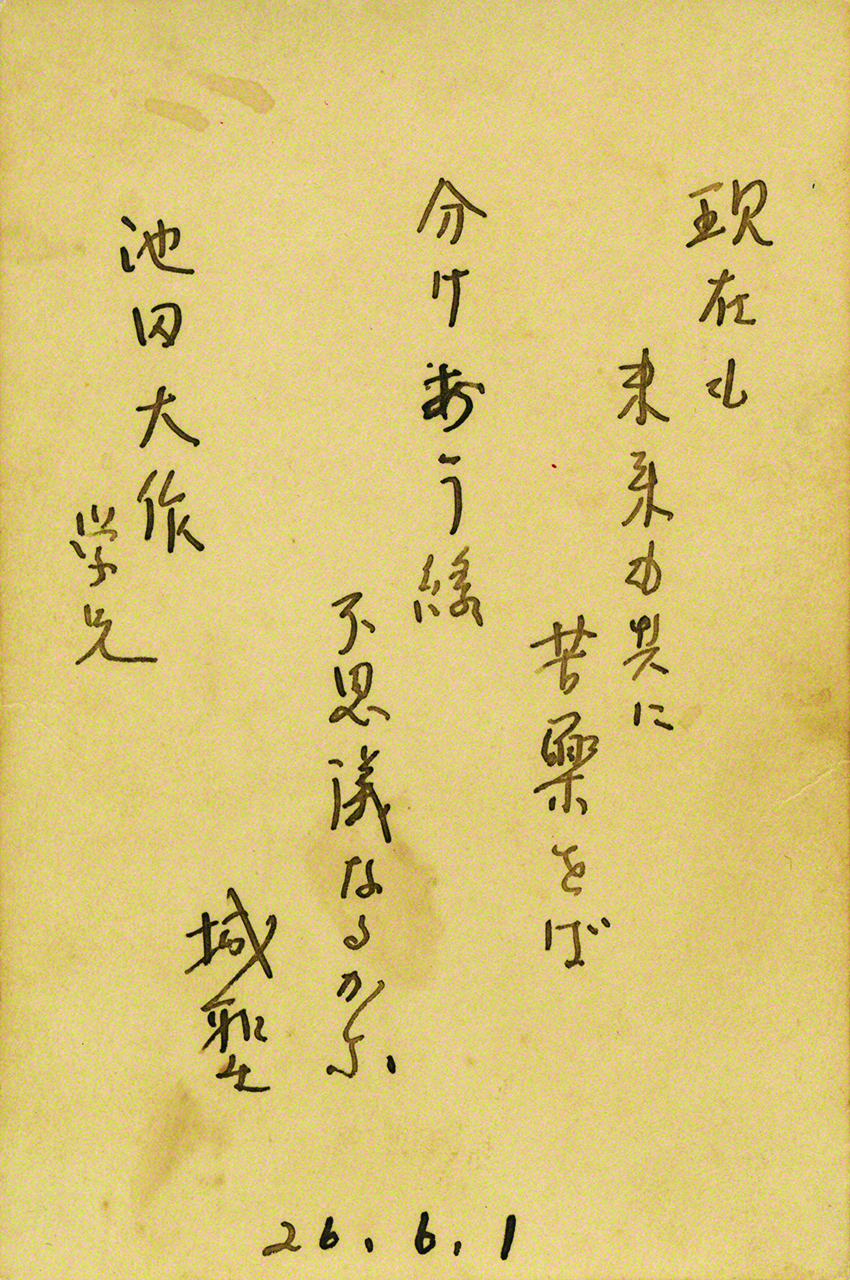 現在も
未来も共に
苦楽をば
分け あう縁
不思議なるかな
城聖
池田大作
学兄
26.6.1